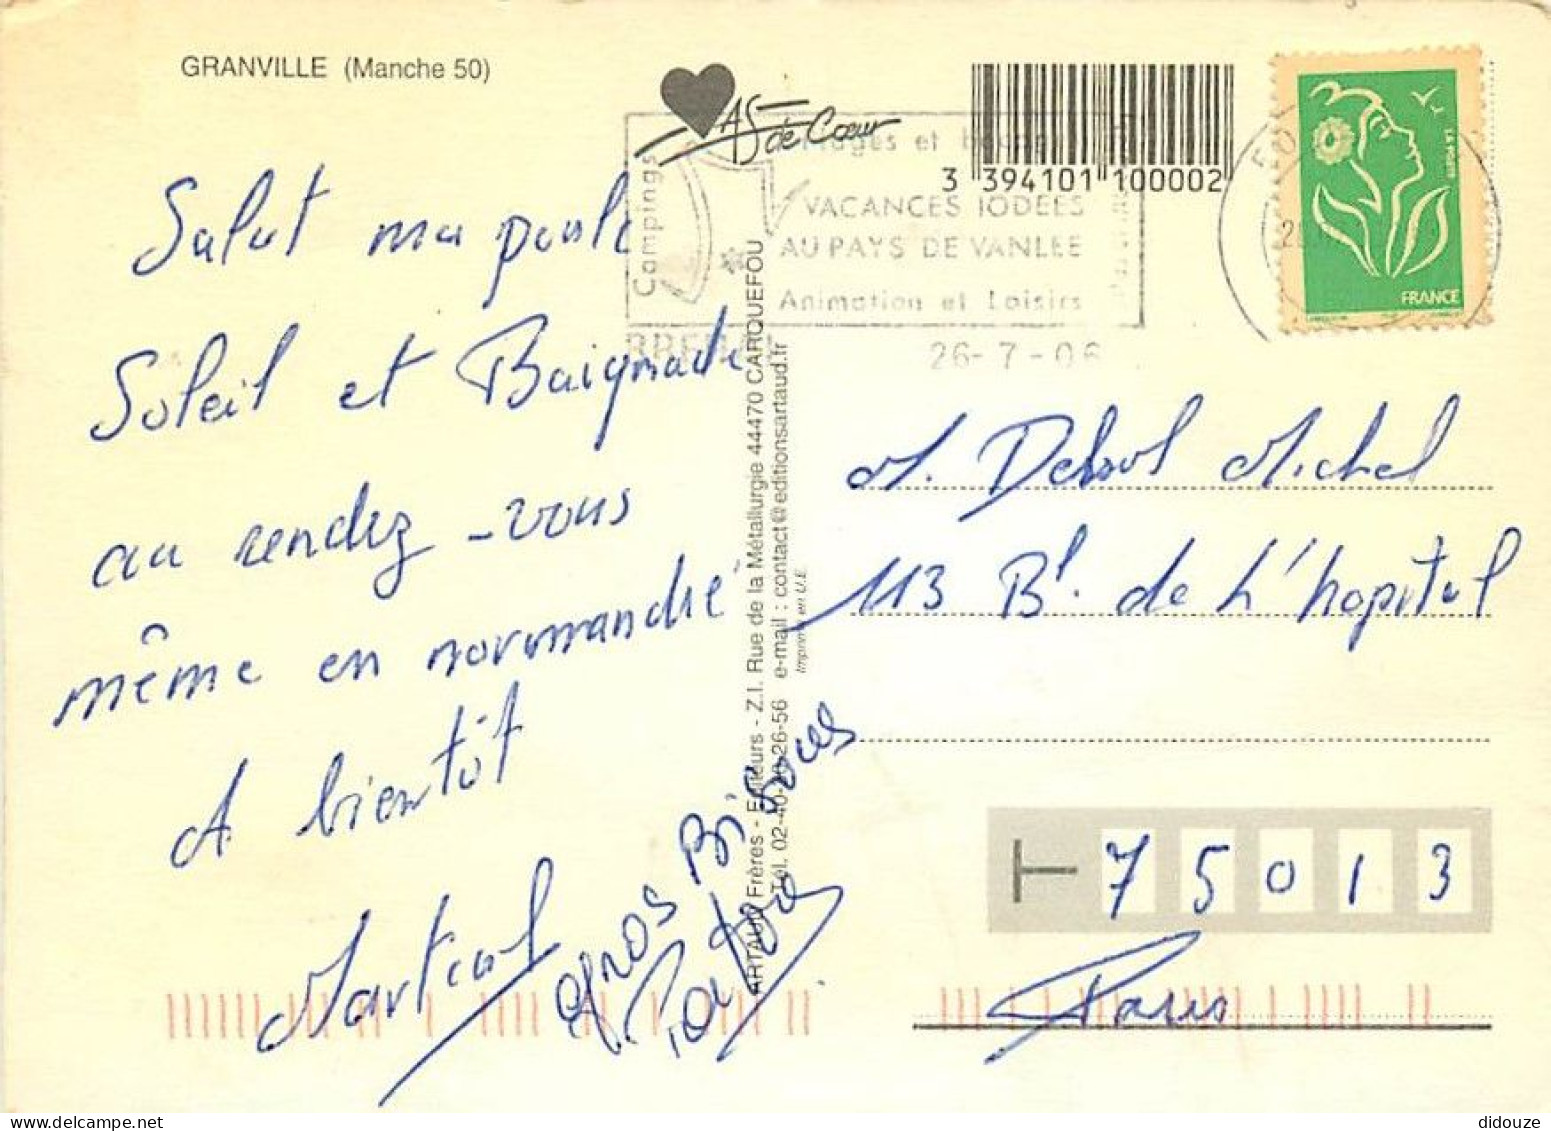 GRANVILLE (Manche 50)
AS de Cœur
3 394101 100002
Campings
VACANCES IODEES
AU PAYS DE VANLEE
Animation et Loisirs
26-7-06
LA POSTE
FRANCE
Salut ma poule
Soleil et Baignade
au rendez-vous
même en normandie
A bientôt
Martial
gros Bisous
ARTAUD Frères - Editeurs - Z.I. Rue de la Métallurgie 44470 CARQUEFOU
Tél. 02-40-26-56 e-mail : contact@editionsartaud.fr
Imprimé en U.E.
M. Delsol Michel
113 Bd. de L'hopital
T 75013
Paris
didouze